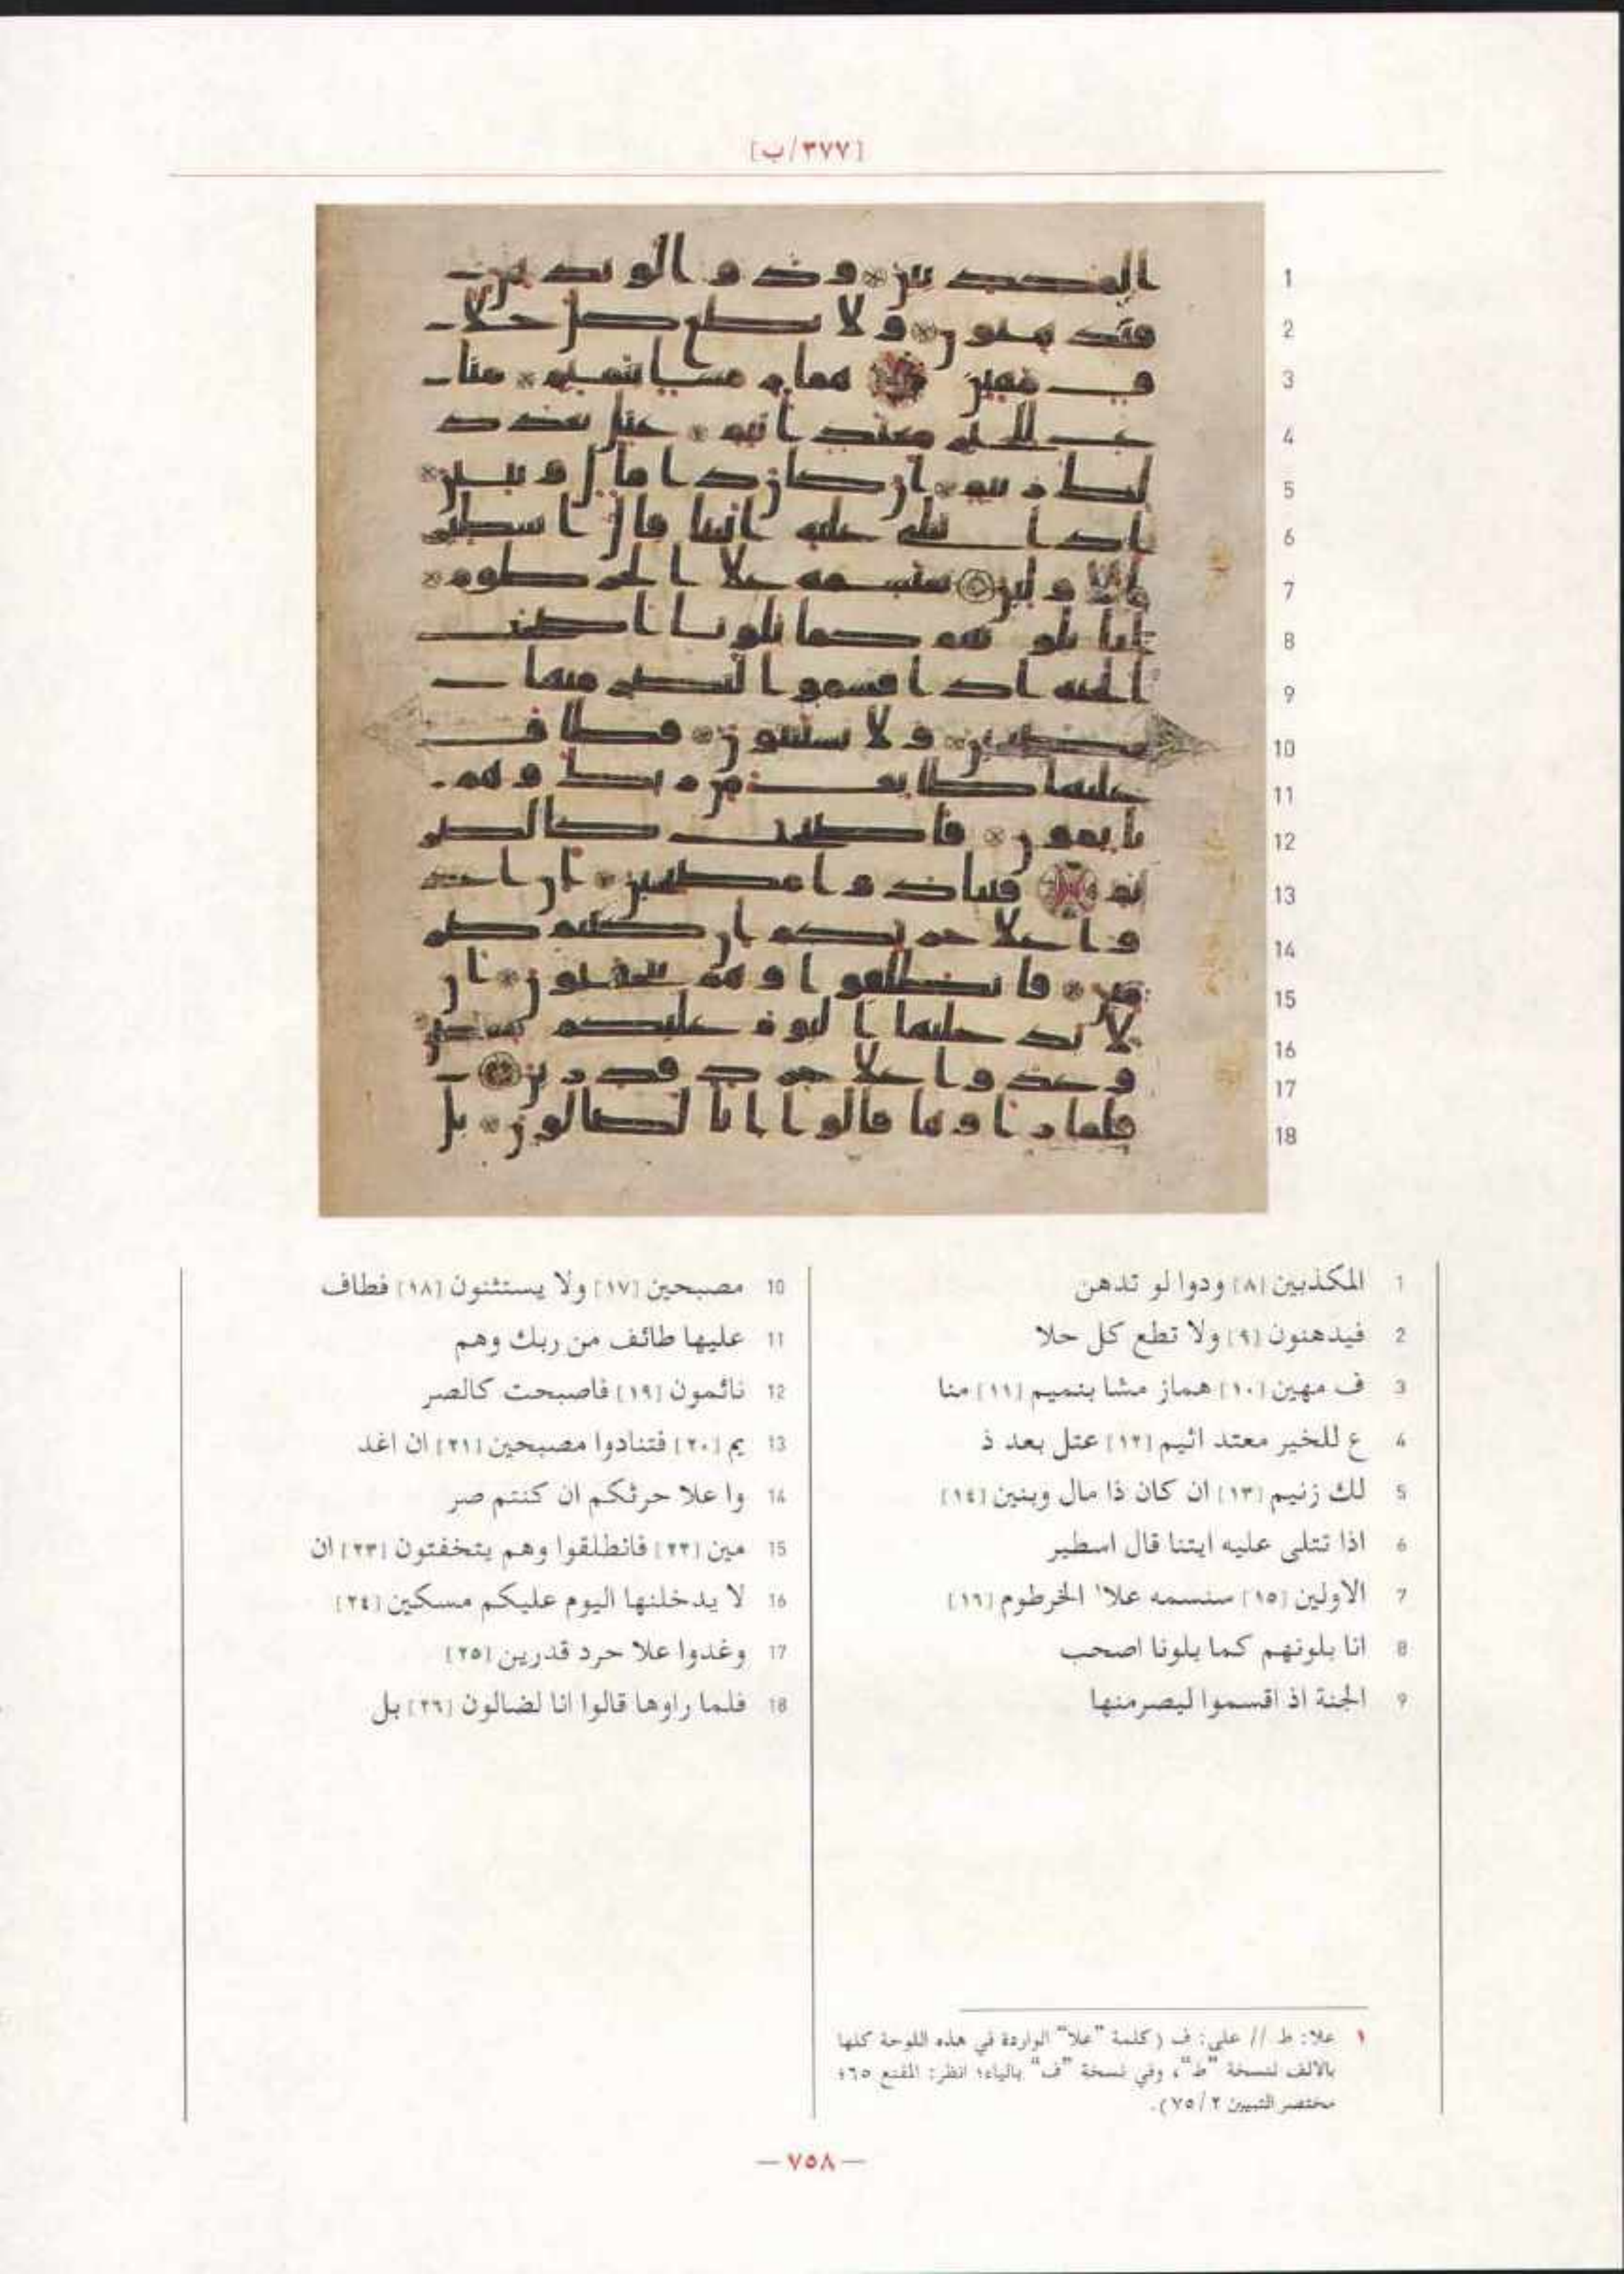 [٣٧٧/ب]
1 المكذبين [٨] ودوا لو تدهن
2 فيدهنون [٩] ولا تطع كل حلا
3 ف مهين [١٠] هماز مشا بنميم [١١] منا
4 ع للخير معتد اثيم [١٢] عتل بعد ذ
5 لك زنيم [١٣] ان كان ذا مال وبنين [١٤]
6 اذا تتلى عليه ايتنا قال اسطير
7 الاولين [١٥] سنسمه علا١ الخرطوم [١٦]
8 انا بلونهم كما بلونا اصحب
9 الجنة اذ اقسموا ليصرمنها
10 مصبحين [١٧] ولا يستثنون [١٨] فطاف
11 عليها طائف من ربك وهم
12 نائمون [١٩] فاصبحت كالصر
13 يم [٢٠] فتنادوا مصبحين [٢١] ان اغد
14 وا علا حرثكم ان كنتم صر
15 مين [٢٢] فانطلقوا وهم يتخفتون [٢٣] ان
16 لا يدخلنها اليوم عليكم مسكين [٢٤]
17 وغدوا علا حرد قدرين [٢٥]
18 فلما راوها قالوا انا لضالون [٢٦] بل
١ علا: ط // على: ف (كلمة "علا" الواردة في هذه اللوحة كلها
بالالف لنسخة "ط"، وفي نسخة "ف" بالياء؛ انظر: المقنع ٦٥؛
مختصر التبيين ٢/ ٧٥).
— ٧٥٨ —